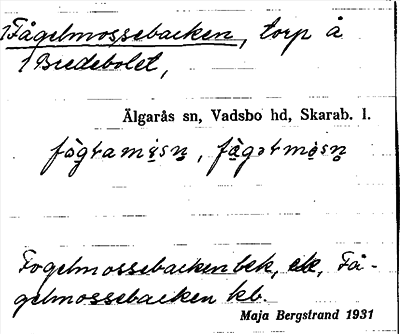 1 Fågelmossebacken, torp å
1 Bredebolet,
Älgarås sn, Vadsbo hd, Skarab. l.
Fogelmossebacken bek, ek, Få-
gelmossebacken kb.
Maja Bergstrand 1931